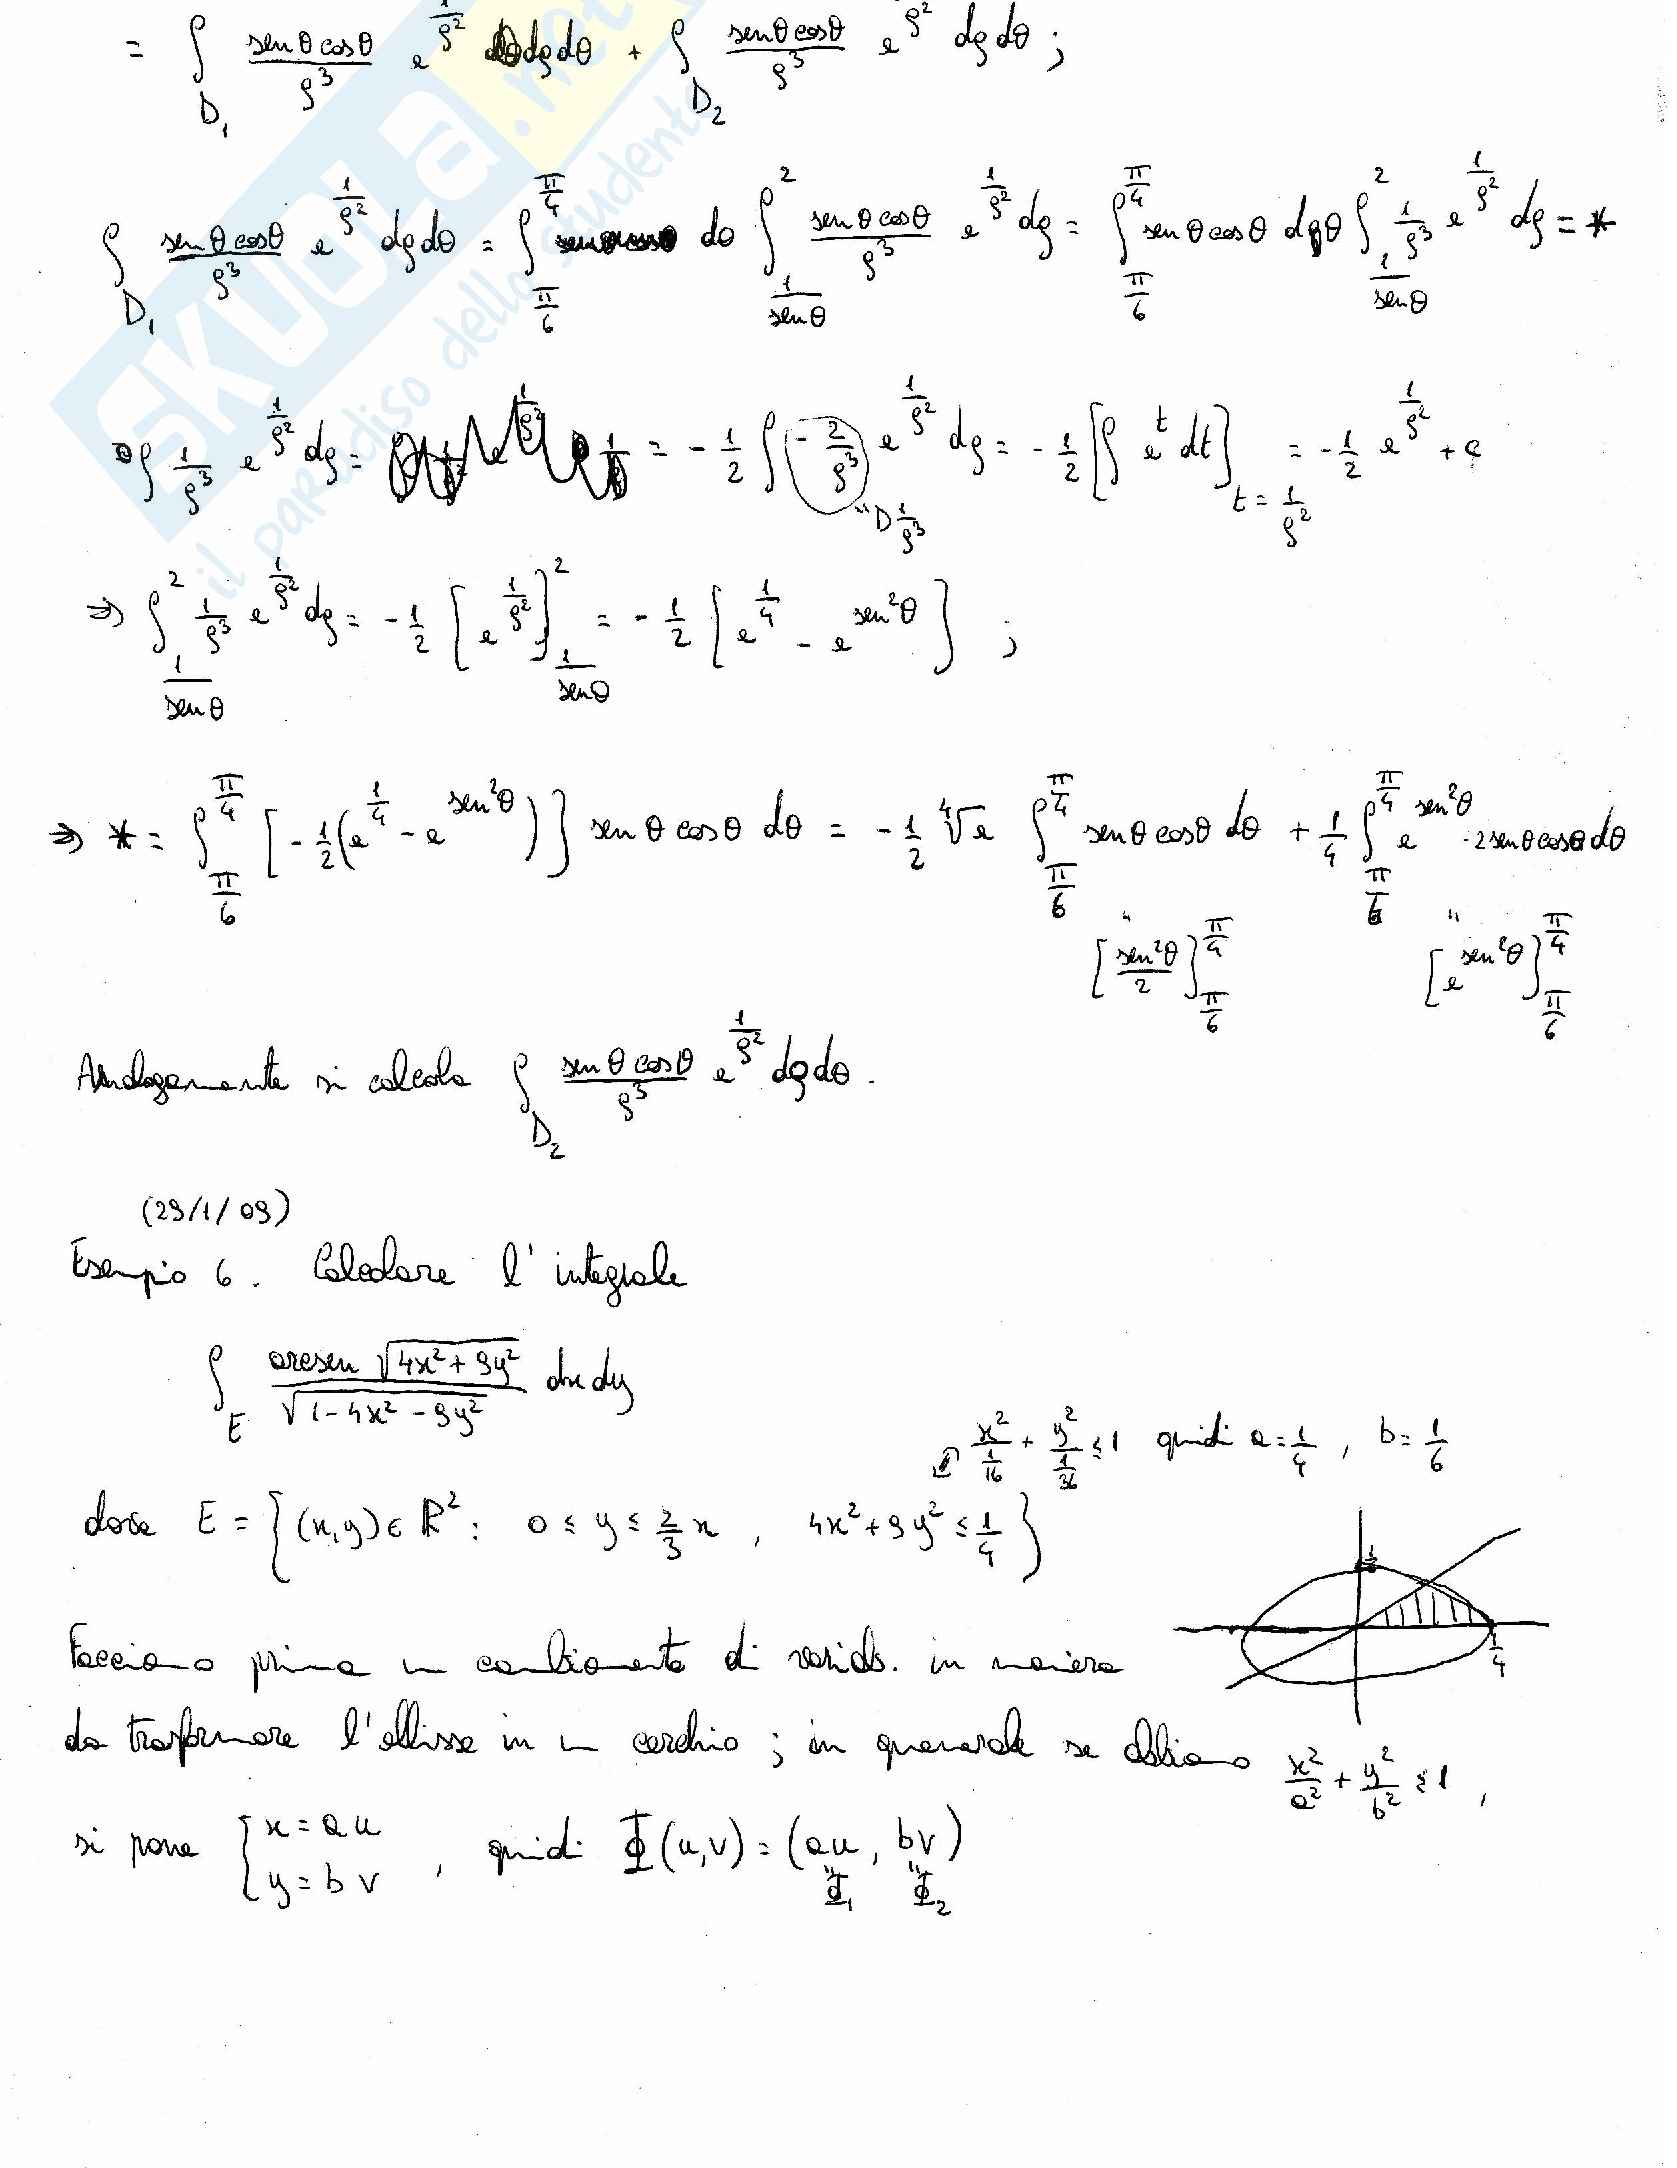 = ∫_{D₁} (senθ cosθ)/ρ³ e^{1/ρ²} dρdθ + ∫_{D₂} (senθ cosθ)/ρ³ e^{1/ρ²} dρdθ ;
∫_{D₁} (senθ cosθ)/ρ³ e^{1/ρ²} dρdθ = ∫_{π/6}^{π/4} dθ ∫_{1/senθ}^{2} (senθ cosθ)/ρ³ e^{1/ρ²} dρ = ∫_{π/6}^{π/4} senθ cosθ dθ ∫_{1/senθ}^{2} 1/ρ³ e^{1/ρ²} dρ = *
∫ 1/ρ³ e^{1/ρ²} dρ = = - 1/2 ∫ - 2/ρ³ e^{1/ρ²} dρ = - 1/2 [∫ e^t dt]_{t = 1/ρ²} = - 1/2 e^{1/ρ²} + c
" D 1/ρ³
⇒ ∫_{1/senθ}^{2} 1/ρ³ e^{1/ρ²} dρ = - 1/2 [e^{1/ρ²}]_{1/senθ}^{2} = - 1/2 [e^{1/4} - e^{sen²θ}] ;
⇒ * = ∫_{π/6}^{π/4} [- 1/2 (e^{1/4} - e^{sen²θ})] senθ cosθ dθ = - 1/2 ⁴√e ∫_{π/6}^{π/4} senθ cosθ dθ + 1/4 ∫_{π/6}^{π/4} e^{sen²θ} · 2 senθ cosθ dθ
" [sen²θ/2]_{π/6}^{π/4} " [e^{sen²θ}]_{π/6}^{π/4}
Analogamente si calcola ∫_{D₂} (senθ cosθ)/ρ³ e^{1/ρ²} dρdθ .
(29/1/09)
Esempio 6. Calcolare l'integrale
∫_E (arcsen √(4x² + 9y²))/(√(1 - 4x² - 9y²)) dxdy
x²/(1/16) + y²/(1/36) ≤ 1 quindi a = 1/4 , b = 1/6
dove E = {(x,y) ∈ ℝ² : 0 ≤ y ≤ 2/3 x , 4x² + 9y² ≤ 1/4}
1/6
1/4
Facciamo prima un cambiamento di variab. in maniera
da trasformare l'ellisse in un cerchio ; in generale se abbiamo x²/a² + y²/b² ≤ 1 ,
si pone { x = au , y = bv , quindi Φ(u,v) = (au , bv)
" Φ₁ " Φ₂
SKUOLA.net
il paradiso dello studente